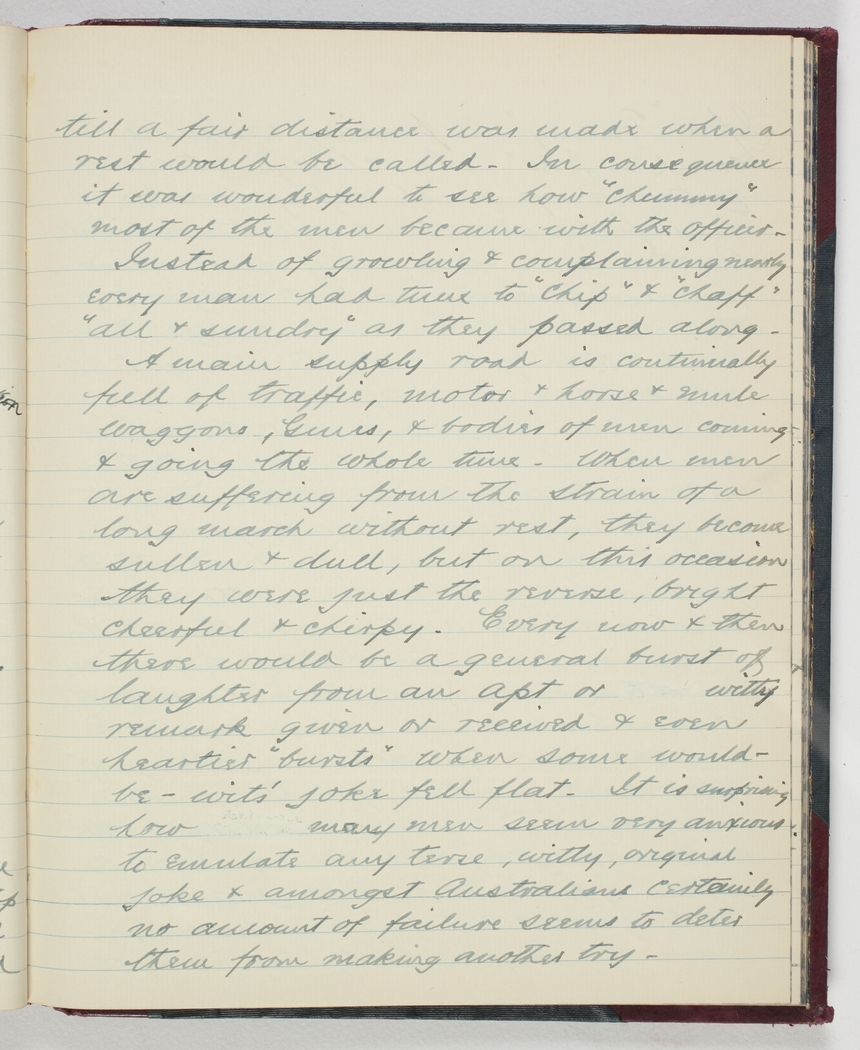 till a fair distance was made when a
rest would be called - In consequence
it was wonderful to see how "chummy"
most of the men became with the officer -
Instead of growling & complaining nearly
every man had time to "chip" & "chaff"
"all & sundry" as they passed along -
A main supply road is continually
full of traffic, motor & horse & mule
waggons, Guns, & bodies of men coming
& going the whole time - When men
are suffering from the strain of a
long march without rest, they become
sullen & dull, but on this occasion
they were just the reverse, bright
cheerful & chirpy. Every now & then
there would be a general burst of
laughter from an apt or witty
remark given or received & even
heartier "bursts" when some would-
be - wits' joke fell flat - It is surprising
how many men seem very anxious
to emulate any terse, witty, original
joke & amongst Australians certainly
no amount of failure seems to deter
them from making another try -